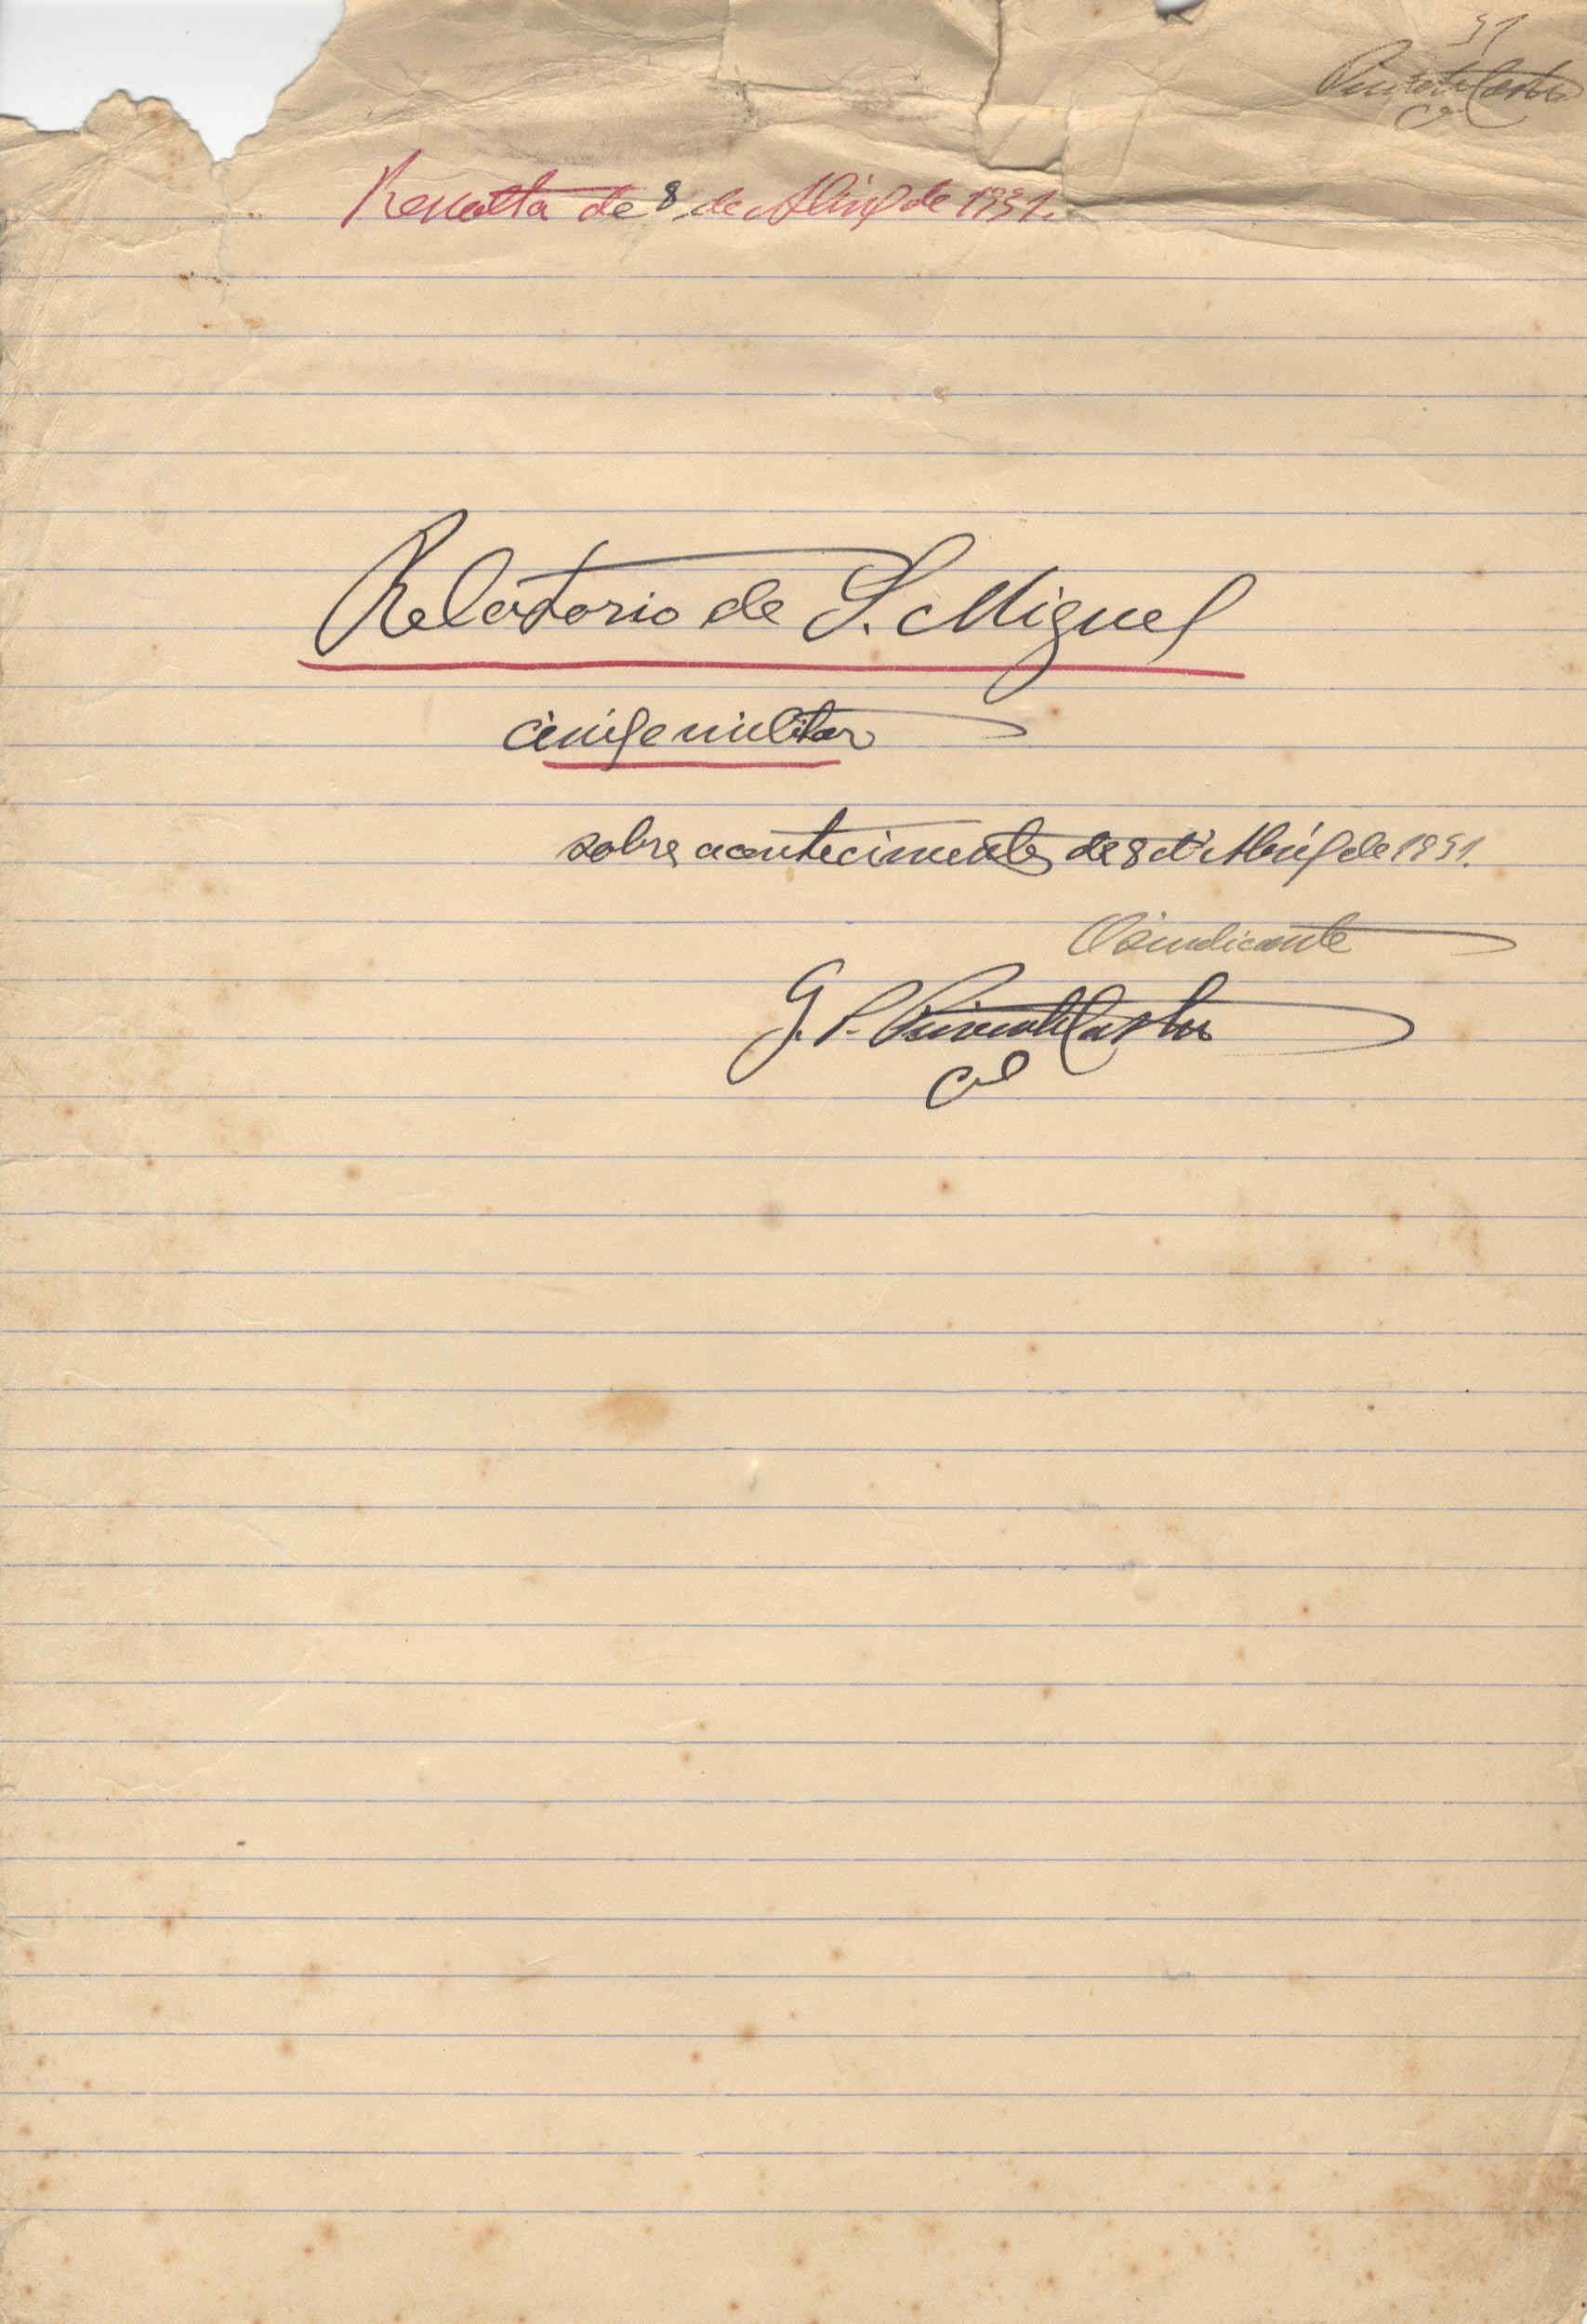 31
Pimenta Castro
Cel
Revolta de 8 de Abril de 1931.
Relatorio de S. Miguel
civil e militar
sobre acontecimentos de 8 d'Abril de 1931.
O sindicante
G. P. Pimenta Castro
Cel